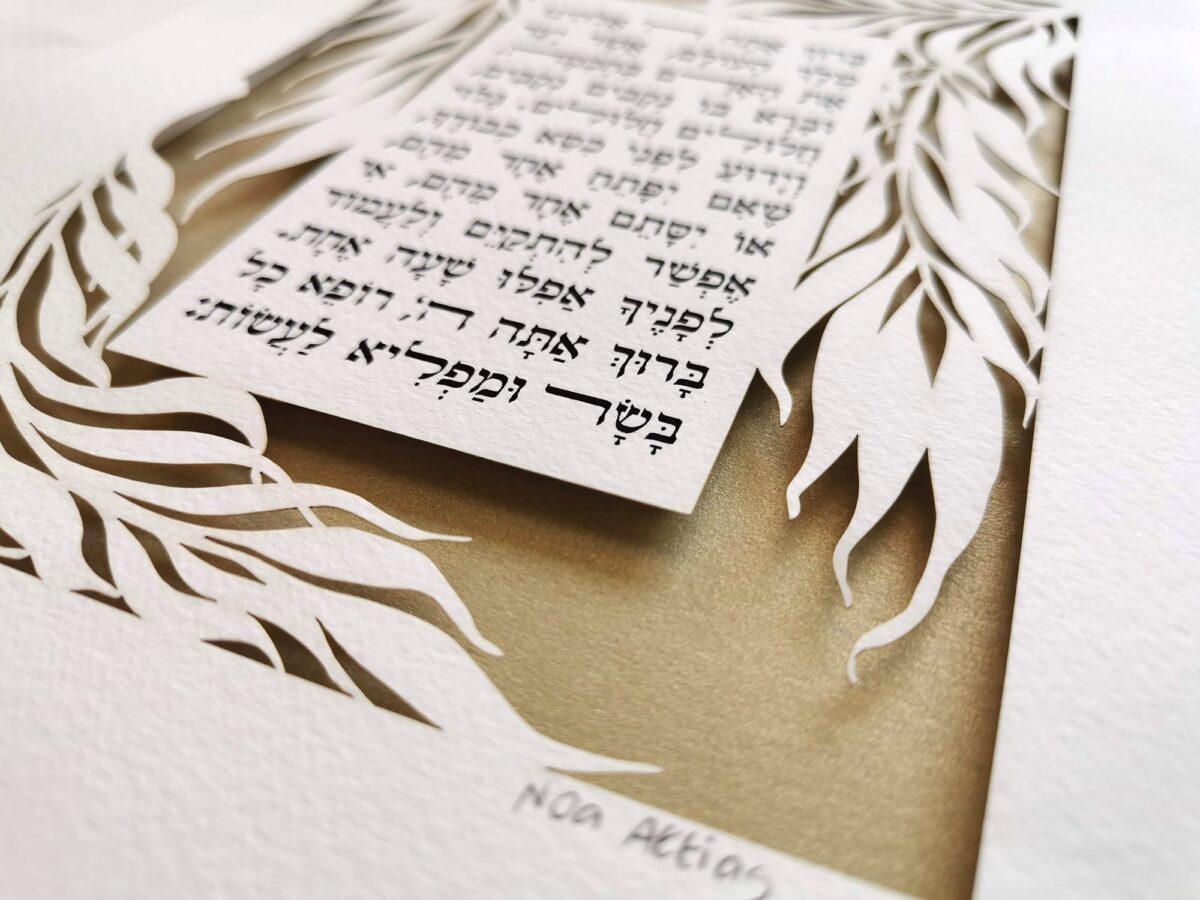 בָּרוּךְ אַתָּה אֱלוֹהֵינוּ
מֶלֶךְ הָעוֹלָם, אֲשֶׁר יָצַר
אֶת הָאָדָם בְּחָכְמָה,
וּבָרָא בוֹ נְקָבִים נְקָבִים,
חֲלוּלִים חֲלוּלִים. גָּלוּי
וְיָדוּעַ לִפְנֵי כִסֵּא כְבוֹדֶךָ,
שֶׁאִם יִפָּתֵחַ אֶחָד מֵהֶם,
אוֹ יִסָּתֵם אֶחָד מֵהֶם, אִי
אֶפְשַׁר לְהִתְקַיֵּם וְלַעֲמוֹד
לְפָנֶיךָ אֲפִלּוּ שָׁעָה אֶחָת.
בָּרוּךְ אַתָּה ה', רוֹפֵא כָל
בָּשָׂר וּמַפְלִיא לַעֲשׂוֹת:
Noa Attias